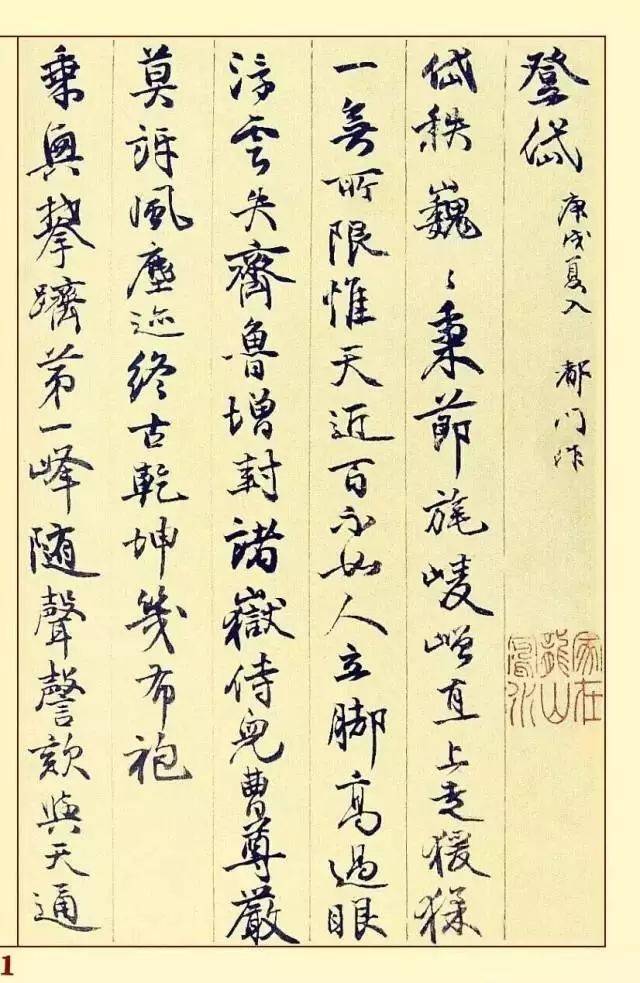 登岱 庚戌夏入 都門作
岱秩巍々秉節旄崚嶒直上走猨猱
一無所限惟天近百不如人立脚高過眼
浮雲失齊魯增封諸嶽侍兒曹尊嚴
莫訝風塵迹終古乾坤幾布袍
乘興攀躋第一峰随聲謦欬與天通
家在龍山鳳水
1